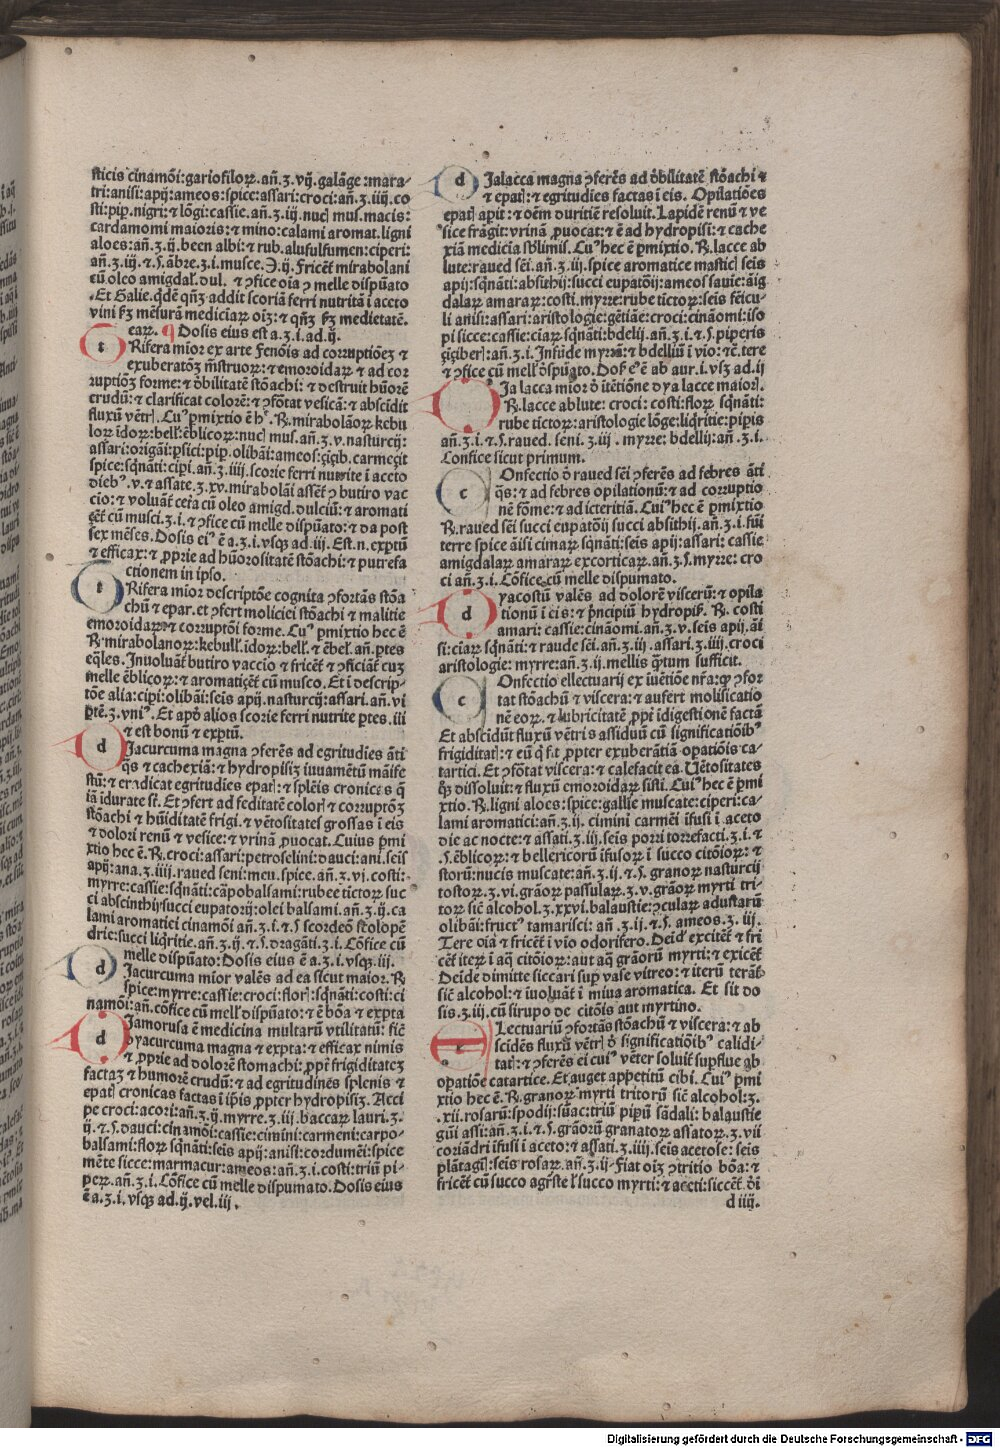 sticis cinamõi:gariofiloꝝ.añ.ʒ.vij.galãge:mara-
tri:anisi:apij:ameos:spice:assari:croci:añ.ʒ.iiij.co
sti:pip.nigri:⁊ lõgi:cassie.añ.ʒ.iij.nuc mus.macis:
cardamomi maioris:⁊ mino:calami aromat.ligni
aloes:añ.ʒ.ij.been albi:⁊ rub.alufulfumen:ciperi:
añ.ʒ.iij.⁊.s.ãbre.ʒ.i.musce.℈.ij. Fricẽt mirabolani
cũ oleo amigdal. dul. ⁊ ꝯfice oia ꝯ melle dispũato
.Et Galie. qñʒ addit scoriã ferri nutritã i aceto
vini mẽsurã mediciaꝝ oiʒ:⁊ qñʒ medietatẽ.
eaꝝ. ¶ Dosis eius est a.ʒ.i.ad.ij.
t Rifera mior ex arte Fenõis ad corruptiõeʒ ⁊
exuberatõʒ mẽstruoꝝ:⁊ emoroidaꝝ ⁊ ad cor
ruptiõʒ forme:⁊ ðbilitatẽ stõachi:⁊ destruit hũorẽ
crudũ:⁊ clarificat colorẽ:⁊ ꝯfõtat vesicã:⁊ abscidit
fluxũ vẽtr. Cuꝰ pmixtio ẽ h. ℞. mirabolãoꝝ kebu
loꝝ idoꝝ:bell:ẽblicoꝝ:nuc mus.añ.ʒ.v.nasturcij:
assari:origãi:psici:pip.olibãi:ameos:çiçib.carmeçit
spice:sq̃nãti:cipi.añ.ʒ.iiij.scorie ferri nutrite i aceto
diebꝰ.v.⁊ assate.ʒ.xv.mirabolãi assẽt ꝯ butiro vac
cio:⁊ voluãt cetra cũ oleo amigd.dulciũ:⁊ aromati
çẽt cũ musci.ʒ.i.⁊ ꝯfice cũ melle dispũato:⁊ da post
sex mẽses. Dosis eiꝰ ẽ a.ʒ.i.vsqʒ ad.iij. Est.n.exptũ
⁊ efficax:⁊ pprie ad hũorositatẽ stõachi:⁊ putrefa
ctionem in ipso.
t Rifera mior descriptõe cognita ꝯfortãs stõa
chũ ⁊ epar.et ꝯfert moliciei stõachi ⁊ malitie
emoroidaꝝ ⁊ corruptõi forme. Cuꝰ pmixtio hec ẽ
℞.mirabolanoꝝ:kebull.idoꝝ:bell.⁊ ẽbel.añ.ptes
eq̃les. Inuoluãt butiro vaccio ⁊ fricẽt ⁊ ꝯficiãt cuʒ
melle ẽblicoꝝ:⁊ aromatiçẽt cũ musco. Et i descrip-
tõe alia:cipi:olibãi:seis apij.nasturcij:assari.añ.vi
ptẽ.ʒ.vniꝰ. Et apð alios scorie ferri nutrite ptes.iii
⁊ est bonũ ⁊ exptũ.
d Iacurcuma magna ꝯferẽs ad egritudies ãti
q̃s ⁊ cachexiã:⁊ hydropisiʒ iuuamẽtũ mãife
stũ:⁊ eradicat egritudies epat:⁊ splẽis cronicas q̃
iã idurate st. Et ꝯfert ad feditatẽ color ⁊ corruptõʒ
stõachi ⁊ hũiditatẽ frigi.⁊ vẽtositates grossas i eis
⁊ dolori renũ ⁊ vesice:⁊ vrinã puocat. Cuius pmi
xtio hec ẽ.℞.croci:assari:petroselini:dauci:ani.seis
apij:ana.ʒ.iiij.raued seni:men.spice.añ.ʒ.vi.costi:
myrre:cassie:sq̃nãti:cãpobalsami:rubee tictoꝝ suc
ci absinthij:succi eupatorij:olei balsami.añ.ʒ.ij.ca
lami aromatici cinamõi añ.ʒ.i.⁊.s scordeõ stolopẽ
drie:succi liq̃ritie.añ.ʒ.ij.⁊.s.dragãti.ʒ.i. Cõfice cũ
melle dispũato: Dosis eius ẽ a.ʒ.i.vsqʒ.iij.
d Iacurcuma mior valẽs ad ea sicut maior. ℞
spice:myrre:cassie:croci:flor:sq̃nãti:costi:ci
namõi:añ.cõfice cũ mell dispũato:⁊ ẽ bõa ⁊ expta
d Iamorusa ẽ medicina multarũ vtilitatũ: sic
dyacurcuma magna ⁊ expta:⁊ efficax nimis
⁊ pprie ad dolorẽ stomachi: ppt frigiditateʒ
factaʒ ⁊ humorẽ crudũ:⁊ ad egritudines splenis ⁊
epat cronicas factas i ipis ppter hydropisiʒ. Acci
pe croci:acori:añ.ʒ.ij.myrre.ʒ.iij.baccaꝝ lauri.ʒ.
ij.⁊.s.dauci:cinamõi:cassie:cimini:carmeni:carpo-
balsami:floꝝ sq̃nãti:seis apij:anisi:cordumẽi:spice
mẽte sicce:marmacur:ameos:añ.ʒ.i.costi:triũ pi-
peꝝ.añ.ʒ.i. Cõfice cũ melle dispumato. Dosis eius
ẽ a.ʒ.i.vsqʒ ad.ij.vel.iij.
d Ialacca magna ꝯferẽs ad ðbilitatẽ stõachi ⁊
⁊ epat:⁊ egritudies factas i eis. Opilatiões
epat apit:⁊ oẽm duritiẽ resoluit. Lapidẽ renũ ⁊ ve
sice frãgit: vrinã puocat:⁊ ẽ ad hydropisi:⁊ cache
xiã medicia sblimis. Cuꝰ hec ẽ pmixtio. ℞. lacce ab
lute:raued sẽi.añ.ʒ.iij.spice aromatice mastic seis
apij:sq̃nãti:absithij:succi eupatõij:ameos sauie:ãig
dalaꝝ amaraꝝ:costi.myrre:rube tictoꝝ:seis fẽicu-
li anisi:assari:aristologie:gẽtiãe:croci:cinãomi:iso
pi sicce:cassie:ciaꝝ sq̃nãti:bdelij.añ.ʒ.i.⁊.s.piperis
çiçiber:añ.ʒ.i. Infũde myrrã:⁊ bdelliũ i vio:⁊ c̃.tere
⁊ ꝯfice cũ mell ðspũato. Dos eꝰ ẽ ab aur.i.vsʒ ad.ij
Ia lacca mior ð iuẽtiõne dya lacce maior.
℞.lacce ablute: croci: costi:floꝝ sq̃nãti:
rube tictoꝝ:aristologie lõge:liq̃ritie:pipis
añ.ʒ.i.⁊.s.raued. seni.ʒ.iij. myrre: bdelij:añ.ʒ.i.
Confice sicut primum.
c Onfectio ð raued sẽi ꝯferẽs ad febres ãti
q̃s:⁊ ad febres opilationũ:⁊ ad corruptio
nẽ fõme:⁊ ad icteritiã. Cuiꝰ hec ẽ pmixtio
℞.raued sẽi succi eupatõij succi absithij.añ.ʒ.i.fũi
terre spice ãisi cimaꝝ sq̃nãti:seis apij:assari: cassie
amigdalaꝝ amaraꝝ excorticaꝝ.añ.ʒ.s.myrre: cro
ci añ.ʒ.i. Cõfice cũ melle dispumato.
d yacostũ valẽs ad dolorẽ visceꝝ:⁊ opila
tionũ i eis:⁊ pncipiũ hydropis. ℞. costi
amari: cassie:cinãomi.añ.ʒ.v.seis apij.ãi
si:ciaꝝ sq̃nãti:⁊ raude sẽi.añ.ʒ.ij.assari.ʒ.iiij.croci
aristologie: myrre:añ.ʒ.ij.mellis q̃tum sufficit.
c Onfectio ellectuarij ex iuẽtiõe nra:qʒ ꝯfor
tat stõachũ ⁊ viscera:⁊ aufert molificatio
nẽ eoꝝ.⁊ lubricitatẽ ppt idigestionẽ factã
Et abscidũt fluxũ vẽtris assiduũ cũ significatiõibꝰ
frigiditat:⁊ eũ q̃ fit ppter exuberãtiã opatiõis ca-
tartici. Et ꝯfõtat viscera:⁊ calefacit ea. Vẽtositates
q̃ʒ dissoluit:⁊ fluxũ emoroidaꝝ sisti. Cuiꝰ hec ẽ pmi
xtio. ℞. ligni aloes:spice:gallie muscate:ciperi:ca-
lami aromatici:añ.ʒ.ij. cimini carmẽi ifusi i aceto
die ac nocte:⁊ assati.ʒ.iij.seis porri torrefacti.ʒ.i.⁊
.s.ẽblicoꝝ:⁊ bellericorũ ifusoꝝ i succo citõioꝝ:⁊
storũ:nucis muscate:añ.ʒ.ij.⁊.s. granoꝝ nasturcij
tostoꝝ.ʒ.vi.grãoꝝ passulaꝝ.ʒ.v.grãoꝝ myrti tri-
toꝝ sic alcohol.ʒ.xxvi.balaustie:ꝯculaꝝ adustarũ
olibãi:fructꝰ tamarisci: añ.ʒ.ij.⁊.s. ameos.ʒ.iij.
Tere oia ⁊ fricẽt i vio odorifero. Deid excitẽt ⁊ fri
cẽt iteꝝ i aq̃ citõioꝝ:aut aq̃ grãorũ myrti:⁊ exicẽt
Deĩde dimitte siccari sup vase vitreo:⁊ iterũ terãt
sic alcohol:⁊ iuoluãt i miua aromatica. Et sit do
sis.ʒ.iij.cũ sirupo de citõis aut myrtino.
E Lectuariũ ꝯfortãs stõachũ ⁊ viscera:⁊ ab
scidẽs fluxũ vẽtr ð significatiõibꝰ calidi-
tat:⁊ ꝯferẽs ei cuiꝰ vẽter soluit supflue ob
opatiõẽ catartice. Et auget appetitũ cibi. Cuiꝰ pmi
xtio hec ẽ.℞.granoꝝ myrti tritorũ sic alcohol:ʒ.
.xii.rosarũ:spodij:sũac:triũ pipũ sãdali: balaustie
gũi assi:añ.ʒ.i.⁊.s.grãorũ granatoꝝ assatoꝝ.ʒ.vii
coriãdri ifusi i aceto:⁊ assati.ʒ.iiij.seis acetose: seis
plãtagi:seis rosaꝝ.añ.ʒ.ij. Fiat oiʒ ꝯtritio bõa:⁊
fricẽt cũ succo agriste l succo myrti:⁊ aceti:siccẽt ði
d iiij.
Digitalisierung gefördert durch die Deutsche Forschungsgemeinschaft - DFG